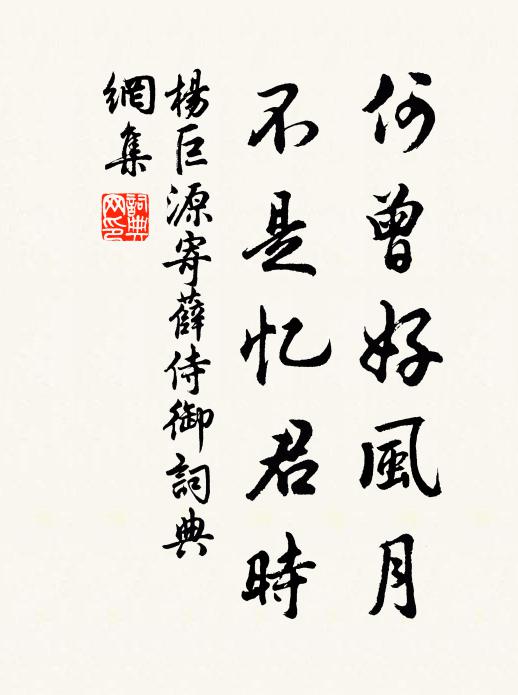 何曾好風月
不是忆君時
楊巨源寄薛侍御詞典
網集
詞典
网印